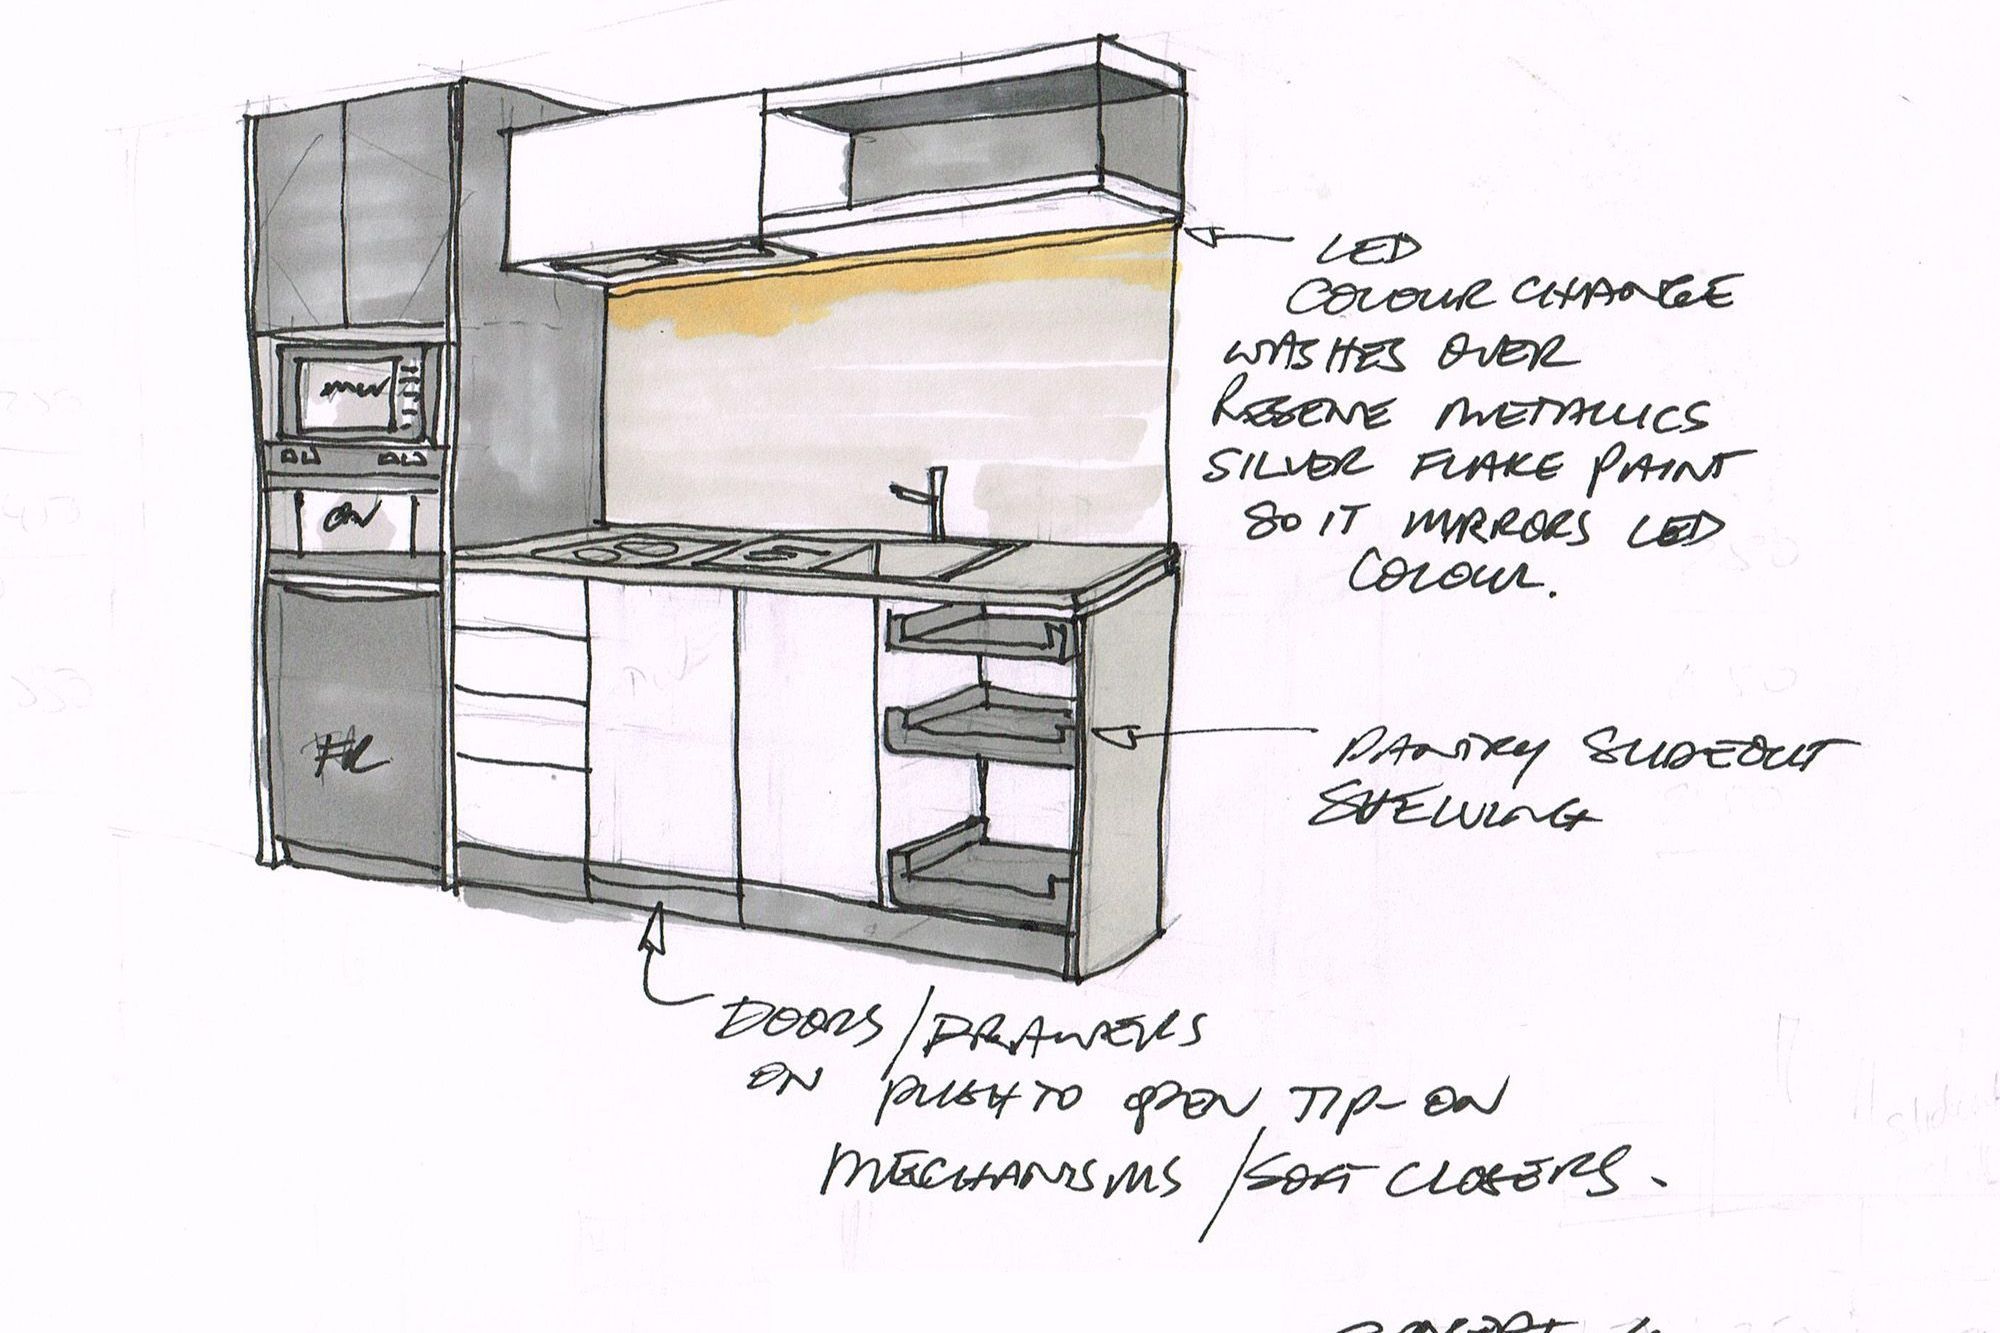 mw
OV
FR
LED
COLOUR CHANGE
WASHES OVER
RESENE METALLICS
SILVER FLAKE PAINT
SO IT MIRRORS LED
COLOUR.
PANTRY SLIDEOUT
SHELVING
DOORS/DRAWERS
ON PUSH TO OPEN TIP-ON
MECHANISMS/SOFT CLOSERS.